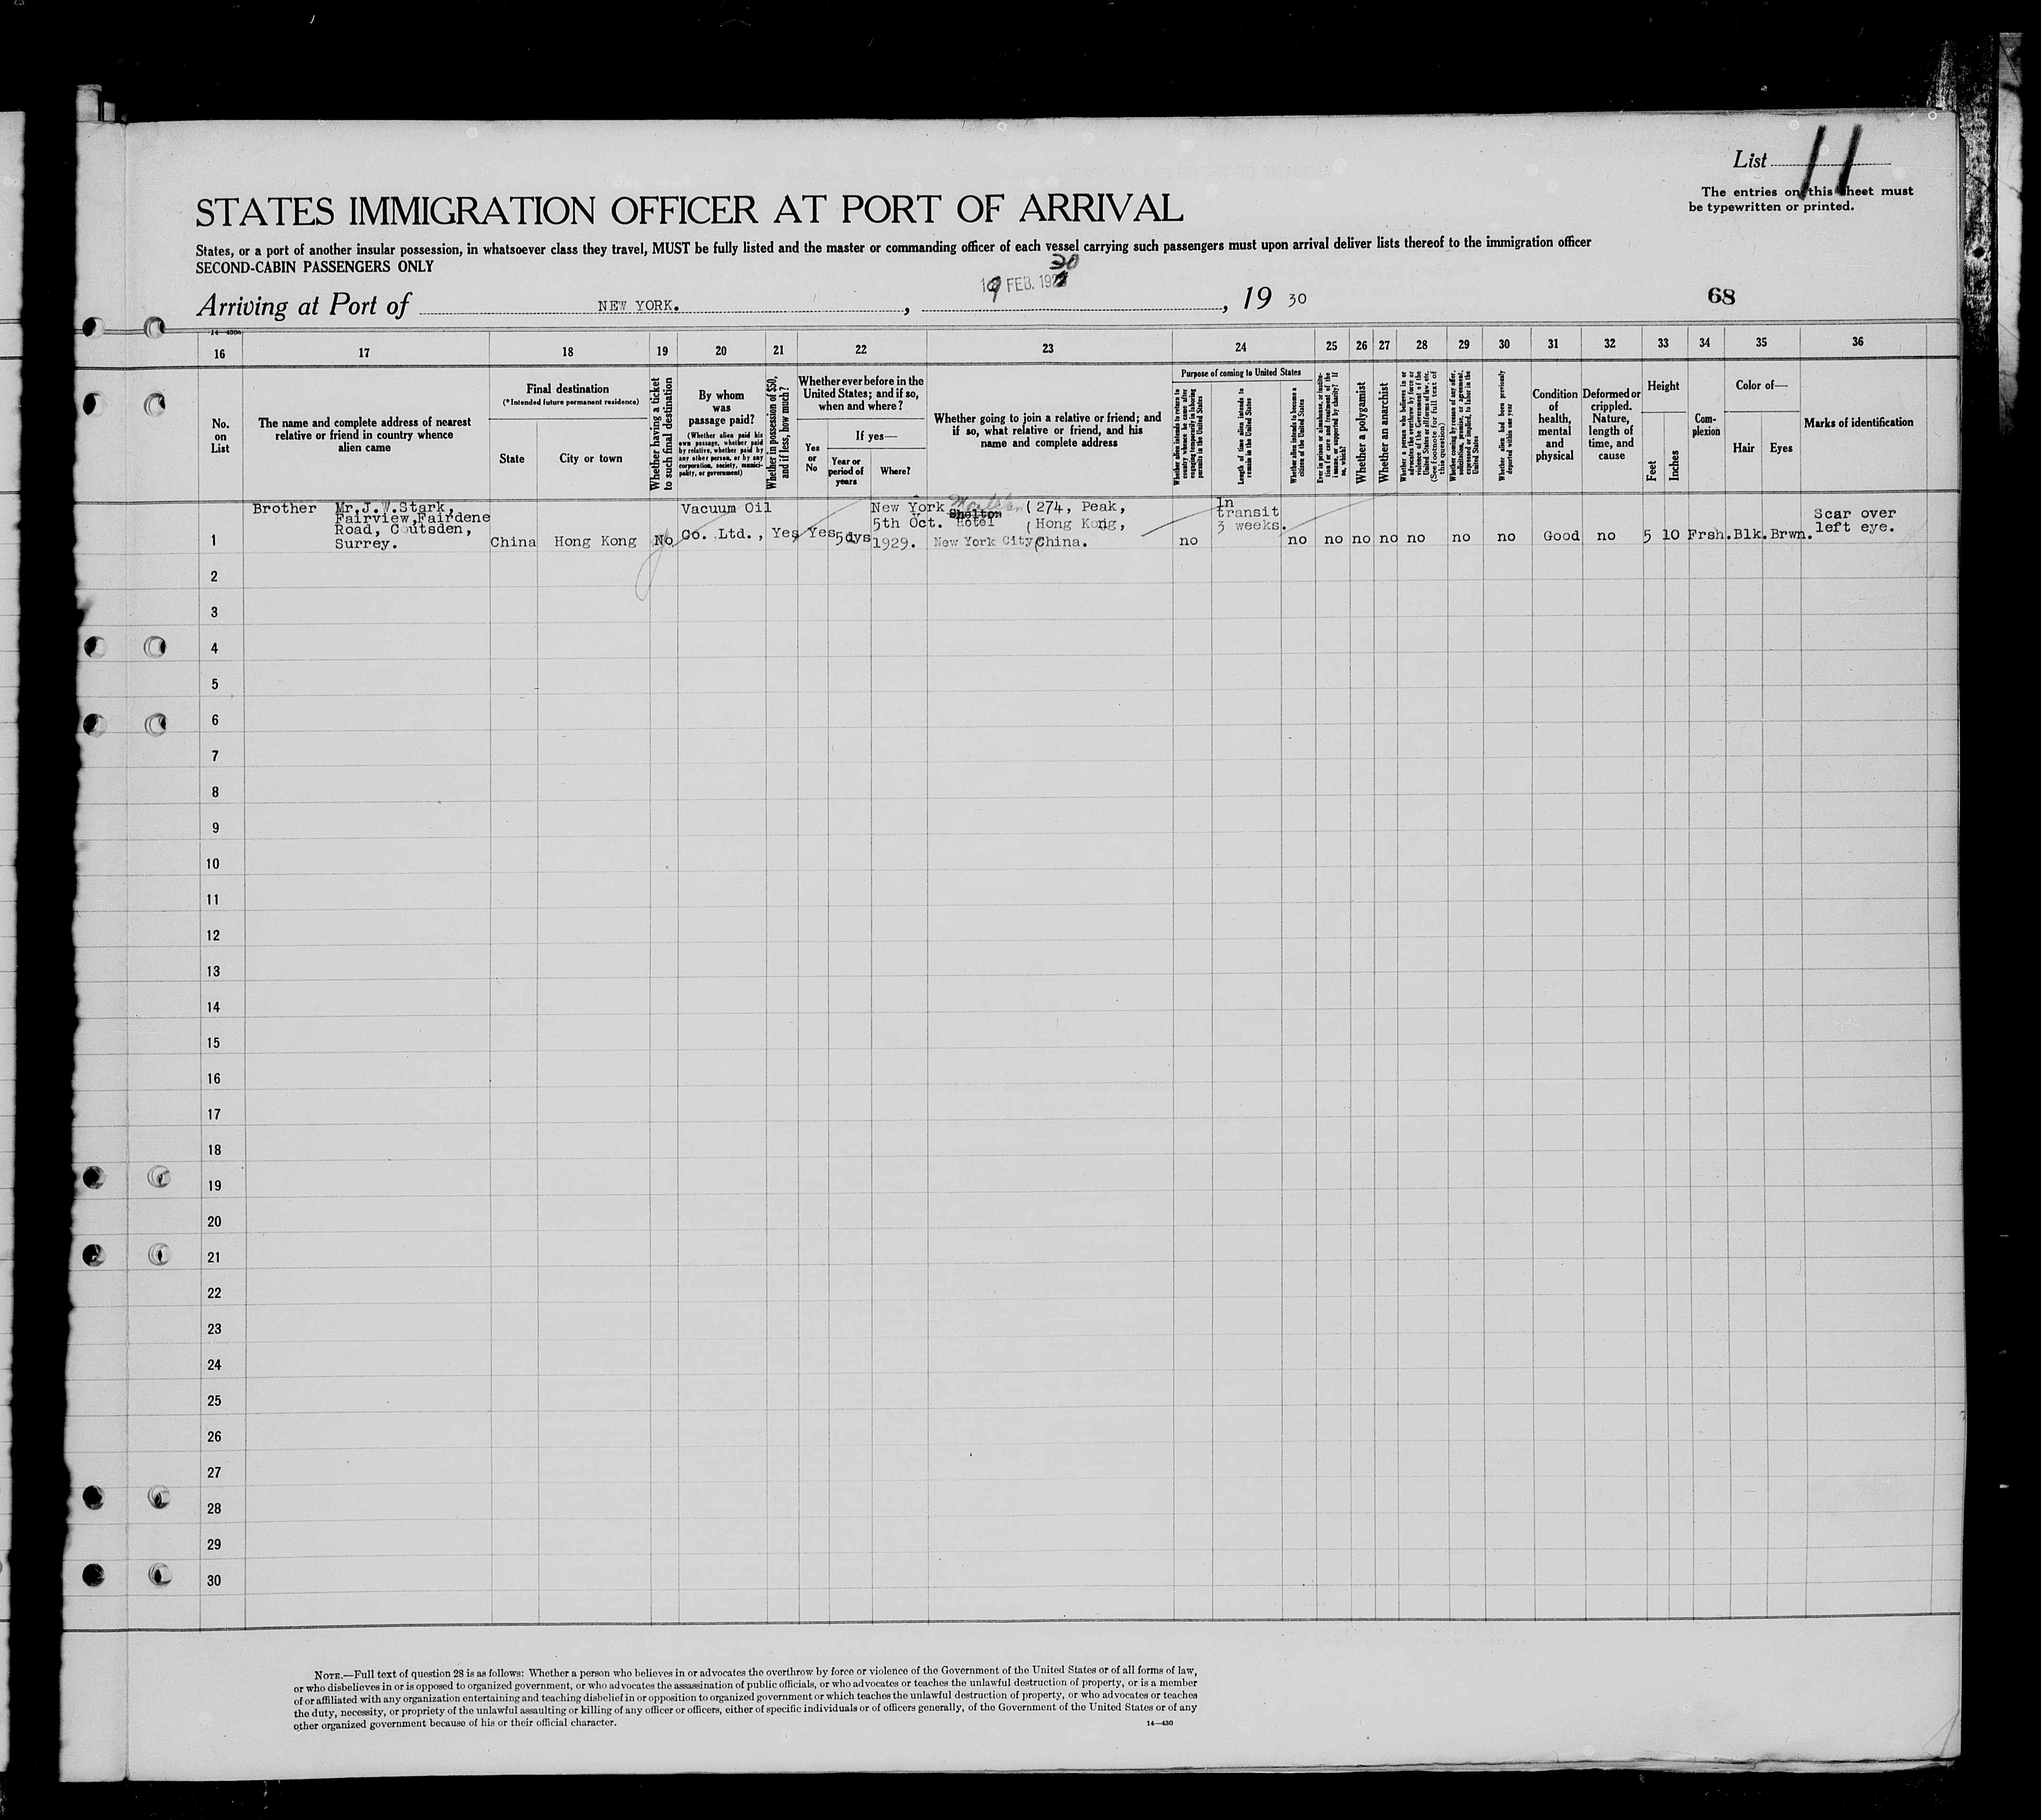 List 11
The entries on this sheet must
be typewritten or printed.
STATES IMMIGRATION OFFICER AT PORT OF ARRIVAL
States, or a port of another insular possession, in whatsoever class they travel, MUST be fully listed and the master or commanding officer of each vessel carrying such passengers must upon arrival deliver lists thereof to the immigration officer
SECOND-CABIN PASSENGERS ONLY
Arriving at Port of NEW YORK. , 19 FEB. 1930 , 19 30
68
14—430a
16 17 18 19 20 21 22 23 24 25 26 27 28 29 30 31 32 33 34 35 36
No.
on
List
The name and complete address of nearest
relative or friend in country whence
alien came
Final destination
(*Intended future permanent residence)
State
City or town
Whether having a ticket
to such final destination
By whom
was
passage paid?
(Whether alien paid his
own passage, whether paid
by relative, whether paid by
any other person, or by any
corporation, society, munici-
pality, or government)
Whether in possession of $50,
and if less, how much?
Whether ever before in the
United States; and if so,
when and where?
Yes
or
No
If yes—
Year or
period of
years
Where?
Whether going to join a relative or friend; and
if so, what relative or friend, and his
name and complete address
Purpose of coming to United States
Whether alien intends to return to
country whence he came after
engaging temporarily in laboring
pursuits in the United States
Length of time alien intends to
remain in the United States
Whether alien intends to become a
citizen of the United States
Ever in prison or almshouse, or institu-
tion for care and treatment of the
insane, or supported by charity? If
so, which?
Whether a polygamist
Whether an anarchist
Whether a person who believes in or
advocates the overthrow by force or
violence of the Government of the
United States or all forms of law, etc.
(See footnote for full text of
this question)
Whether coming by reason of any offer,
solicitation, promise, or agreement,
expressed or implied, to labor in the
United States
Whether alien had been previously
deported within one year
Condition
of
health,
mental
and
physical
Deformed or
crippled.
Nature,
length of
time, and
cause
Height
Feet
Inches
Com-
plexion
Color of—
Hair
Eyes
Marks of identification
Brother Mr.J.W.Stark,
Fairview,Fairdene
Road, Coutsden,
Surrey.
China
Hong Kong
No
Vacuum Oil
Co. Ltd.,
Yes
Yes
5dys
New York
5th Oct.
1929.
Shelton
Hotel
New York City
(274, Peak,
(Hong Kong,
(China.
no
In
transit
3 weeks.
no no no no no no no Good no 5 10 Frsh. Blk. Brwn.
Scar over
left eye.
1
2
3
4
5
6
7
8
9
10
11
12
13
14
15
16
17
18
19
20
21
22
23
24
25
26
27
28
29
30
NOTE.—Full text of question 28 is as follows: Whether a person who believes in or advocates the overthrow by force or violence of the Government of the United States or of all forms of law,
or who disbelieves in or is opposed to organized government, or who advocates the assassination of public officials, or who advocates or teaches the unlawful destruction of property, or is a member
of or affiliated with any organization entertaining and teaching disbelief in or opposition to organized government or which teaches the unlawful destruction of property, or who advocates or teaches
the duty, necessity, or propriety of the unlawful assaulting or killing of any officer or officers, either of specific individuals or of officers generally, of the Government of the United States or of any
other organized government because of his or their official character.
14—430